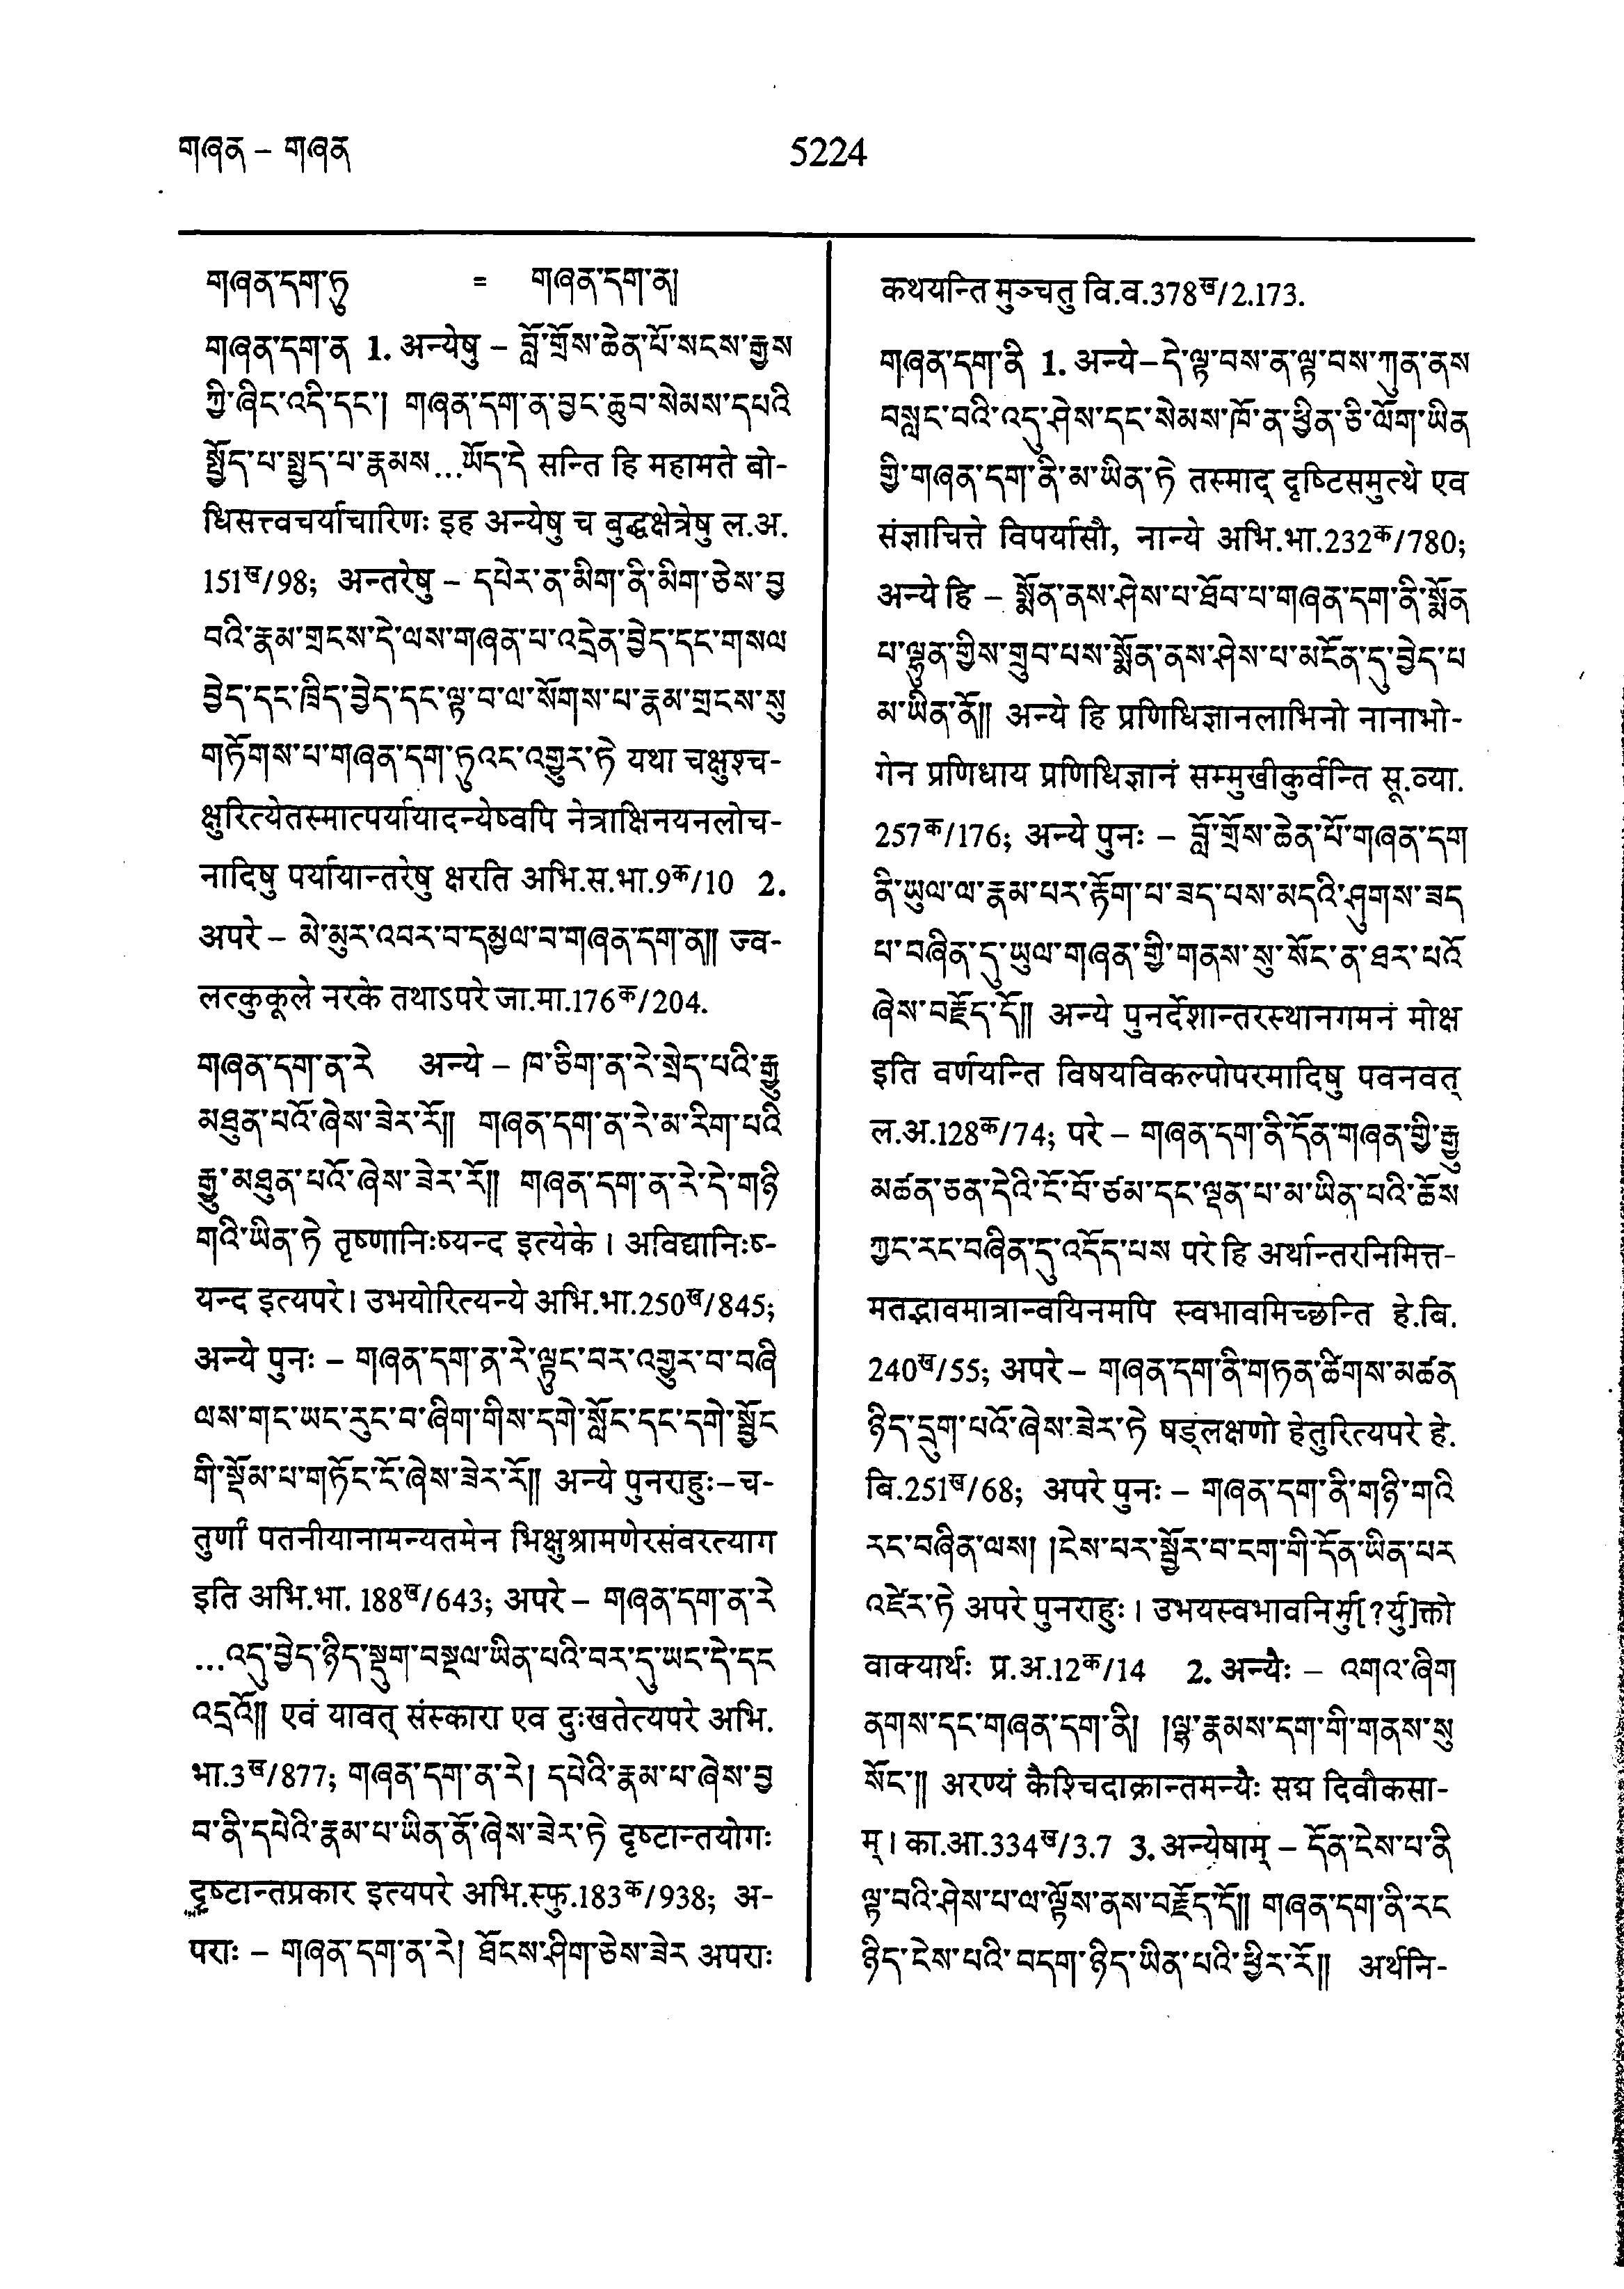 གཞན – གཞན
5224
གཞན་དག་ཏུ = གཞན་དག་ན།
གཞན་དག་ན 1. अन्येषु – བློ་གྲོས་ཆེན་པོ་སངས་རྒྱས
ཀྱི་ཞིང་འདི་དང་། གཞན་དག་ན་བྱང་ཆུབ་སེམས་དཔའི
སྤྱོད་པ་སྤྱད་པ་རྣམས...ཡོད་དེ सन्ति हि महामते बो-
धिसत्त्वचर्याचारिणः इह अन्येषु च बुद्धक्षेत्रेषु ल.अ.
151ख/98; अन्तरेषु – དཔེར་ན་མིག་ནི་མིག་ཅེས་བྱ
བའི་རྣམ་གྲངས་དེ་ལས་གཞན་པ་འདྲེན་བྱེད་དང་གསལ
བྱེད་དང་ཁྲིད་བྱེད་དང་ལྟ་བ་ལ་སོགས་པ་རྣམ་གྲངས་སུ
གཏོགས་པ་གཞན་དག་ཏུའང་འགྱུར་ཏེ यथा चक्षुश्च-
क्षुरित्येतस्मात्पर्यायादन्येष्वपि नेत्राक्षिनयनलोच-
नादिषु पर्यायान्तरेषु क्षरति अभि.स.भा.9क/10 2.
अपरे – མེ་མུར་འབར་བ་དམྱལ་བ་གཞན་དག་ན།། ज्व-
लत्कुकूले नरके तथाऽपरे जा.मा.176क/204.
གཞན་དག་ན་རེ अन्ये – ཁ་ཅིག་ན་རེ་སྲེད་པའི་རྒྱུ
མཐུན་པའོ་ཞེས་ཟེར་རོ།། གཞན་དག་ན་རེ་མ་རིག་པའི
རྒྱུ་མཐུན་པའོ་ཞེས་ཟེར་རོ།། གཞན་དག་ན་རེ་དེ་གཉི
གའི་ཡིན་ཏེ तृष्णानिःष्यन्द इत्येके। अविद्यानिःष-
यन्द इत्यपरे। उभयोरित्यन्ये अभि.भा.250ख/845;
अन्ये पुनः – གཞན་དག་ན་རེ་ལྟུང་བར་འགྱུར་བ་བཞི
ལས་གང་ཡང་རུང་བ་ཞིག་གིས་དགེ་སློང་དང་དགེ་སྦྱོང
གི་སྡོམ་པ་གཏོང་ངོ་ཞེས་ཟེར་རོ།། अन्ये पुनराहुः–च-
तुर्णां पतनीयानामन्यतमेन भिक्षुश्रामणेरसंवरत्याग
इति अभि.भा. 188ख/643; अपरे – གཞན་དག་ན་རེ
...འདུ་བྱེད་ཉིད་སྡུག་བསྔལ་ཡིན་པའི་བར་དུ་ཡང་དེ་དང
འདྲའོ།། एवं यावत् संस्कारा एव दुःखतेत्यपरे अभि.
भा.3ख/877; གཞན་དག་ན་རེ། དཔེའི་རྣམ་པ་ཞེས་བྱ
བ་ནི་དཔེའི་རྣམ་པ་ཡིན་ནོ་ཞེས་ཟེར་ཏེ दृष्टान्तयोगः
दृष्टान्तप्रकार इत्यपरे अभि.स्फु.183क/938; अ-
पराः – གཞན་དག་ན་རེ། ཐོངས་ཤིག་ཅེས་ཟེར अपराः
कथयन्ति मुञ्चतु वि.व.378ख/2.173.
གཞན་དག་ནི 1. अन्ये–དེ་ལྟ་བས་ན་ལྟ་བས་ཀུན་ནས
བསླང་བའི་འདུ་ཤེས་དང་སེམས་ཁོ་ན་ཕྱིན་ཅི་ལོག་ཡིན
གྱི་གཞན་དག་ནི་མ་ཡིན་ཏེ तस्माद् दृष्टिसमुत्थे एव
संज्ञाचित्ते विपर्यासौ, नान्ये अभि.भा.232क/780;
अन्ये हि – སྨོན་ནས་ཤེས་པ་ཐོབ་པ་གཞན་དག་ནི་སྨོན
པ་ལྷུན་གྱིས་གྲུབ་པས་སྨོན་ནས་ཤེས་པ་མངོན་དུ་བྱེད་པ
མ་ཡིན་ནོ།། अन्ये हि प्रणिधिज्ञानलाभिनो नानाभो-
गेन प्रणिधाय प्रणिधिज्ञानं सम्मुखीकुर्वन्ति सू.व्या.
257क/176; अन्ये पुनः – བློ་གྲོས་ཆེན་པོ་གཞན་དག
ནི་ཡུལ་ལ་རྣམ་པར་རྟོག་པ་ཟད་པས་མདའི་ཤུགས་ཟད
པ་བཞིན་དུ་ཡུལ་གཞན་གྱི་གནས་སུ་སོང་ན་ཐར་པའོ
ཞེས་བརྗོད་དོ།། अन्ये पुनर्देशान्तरस्थानगमनं मोक्ष
इति वर्णयन्ति विषयविकल्पोपरमादिषु पवनवत्
ल.अ.128क/74; परे – གཞན་དག་ནི་དོན་གཞན་གྱི་རྒྱུ
མཚན་ཅན་དེའི་ངོ་བོ་ཙམ་དང་ལྡན་པ་མ་ཡིན་པའི་ཆོས
ཀྱང་རང་བཞིན་དུ་འདོད་པས परे हि अर्थान्तरनिमित्त-
मतद्भावमात्रान्वयिनमपि स्वभावमिच्छन्ति हे.बि.
240ख/55; अपरे – གཞན་དག་ནི་གཏན་ཚིགས་མཚན
ཉིད་དྲུག་པའོ་ཞེས་ཟེར་ཏེ षड्लक्षणो हेतुरित्यपरे हे.
बि.251ख/68; अपरे पुनः – གཞན་དག་ནི་གཉི་གའི
རང་བཞིན་ལས། །ངེས་པར་སྦྱོར་བ་ངག་གི་དོན་ཡིན་པར
འཛེར་ཏེ अपरे पुनराहुः। उभयस्वभावनिर्मु[?र्यु]क्तो
वाक्यार्थः प्र.अ.12क/14 2. अन्यैः – འགའ་ཞིག
ནགས་དང་གཞན་དག་ནི། །ལྷ་རྣམས་དག་གི་གནས་སུ
སོང་།། अरण्यं कैश्चिदाक्रान्तमन्यैः सद्म दिवौकसा-
म्। का.आ.334ख/3.7 3. अन्येषाम् – དོན་ངེས་པ་ནི
ལྟ་བའི་ཤེས་པ་ལ་ལྟོས་ནས་བརྗོད་དོ།། གཞན་དག་ནི་རང
ཉིད་ངེས་པའི་བདག་ཉིད་ཡིན་པའི་ཕྱིར་རོ།། अर्थनि-